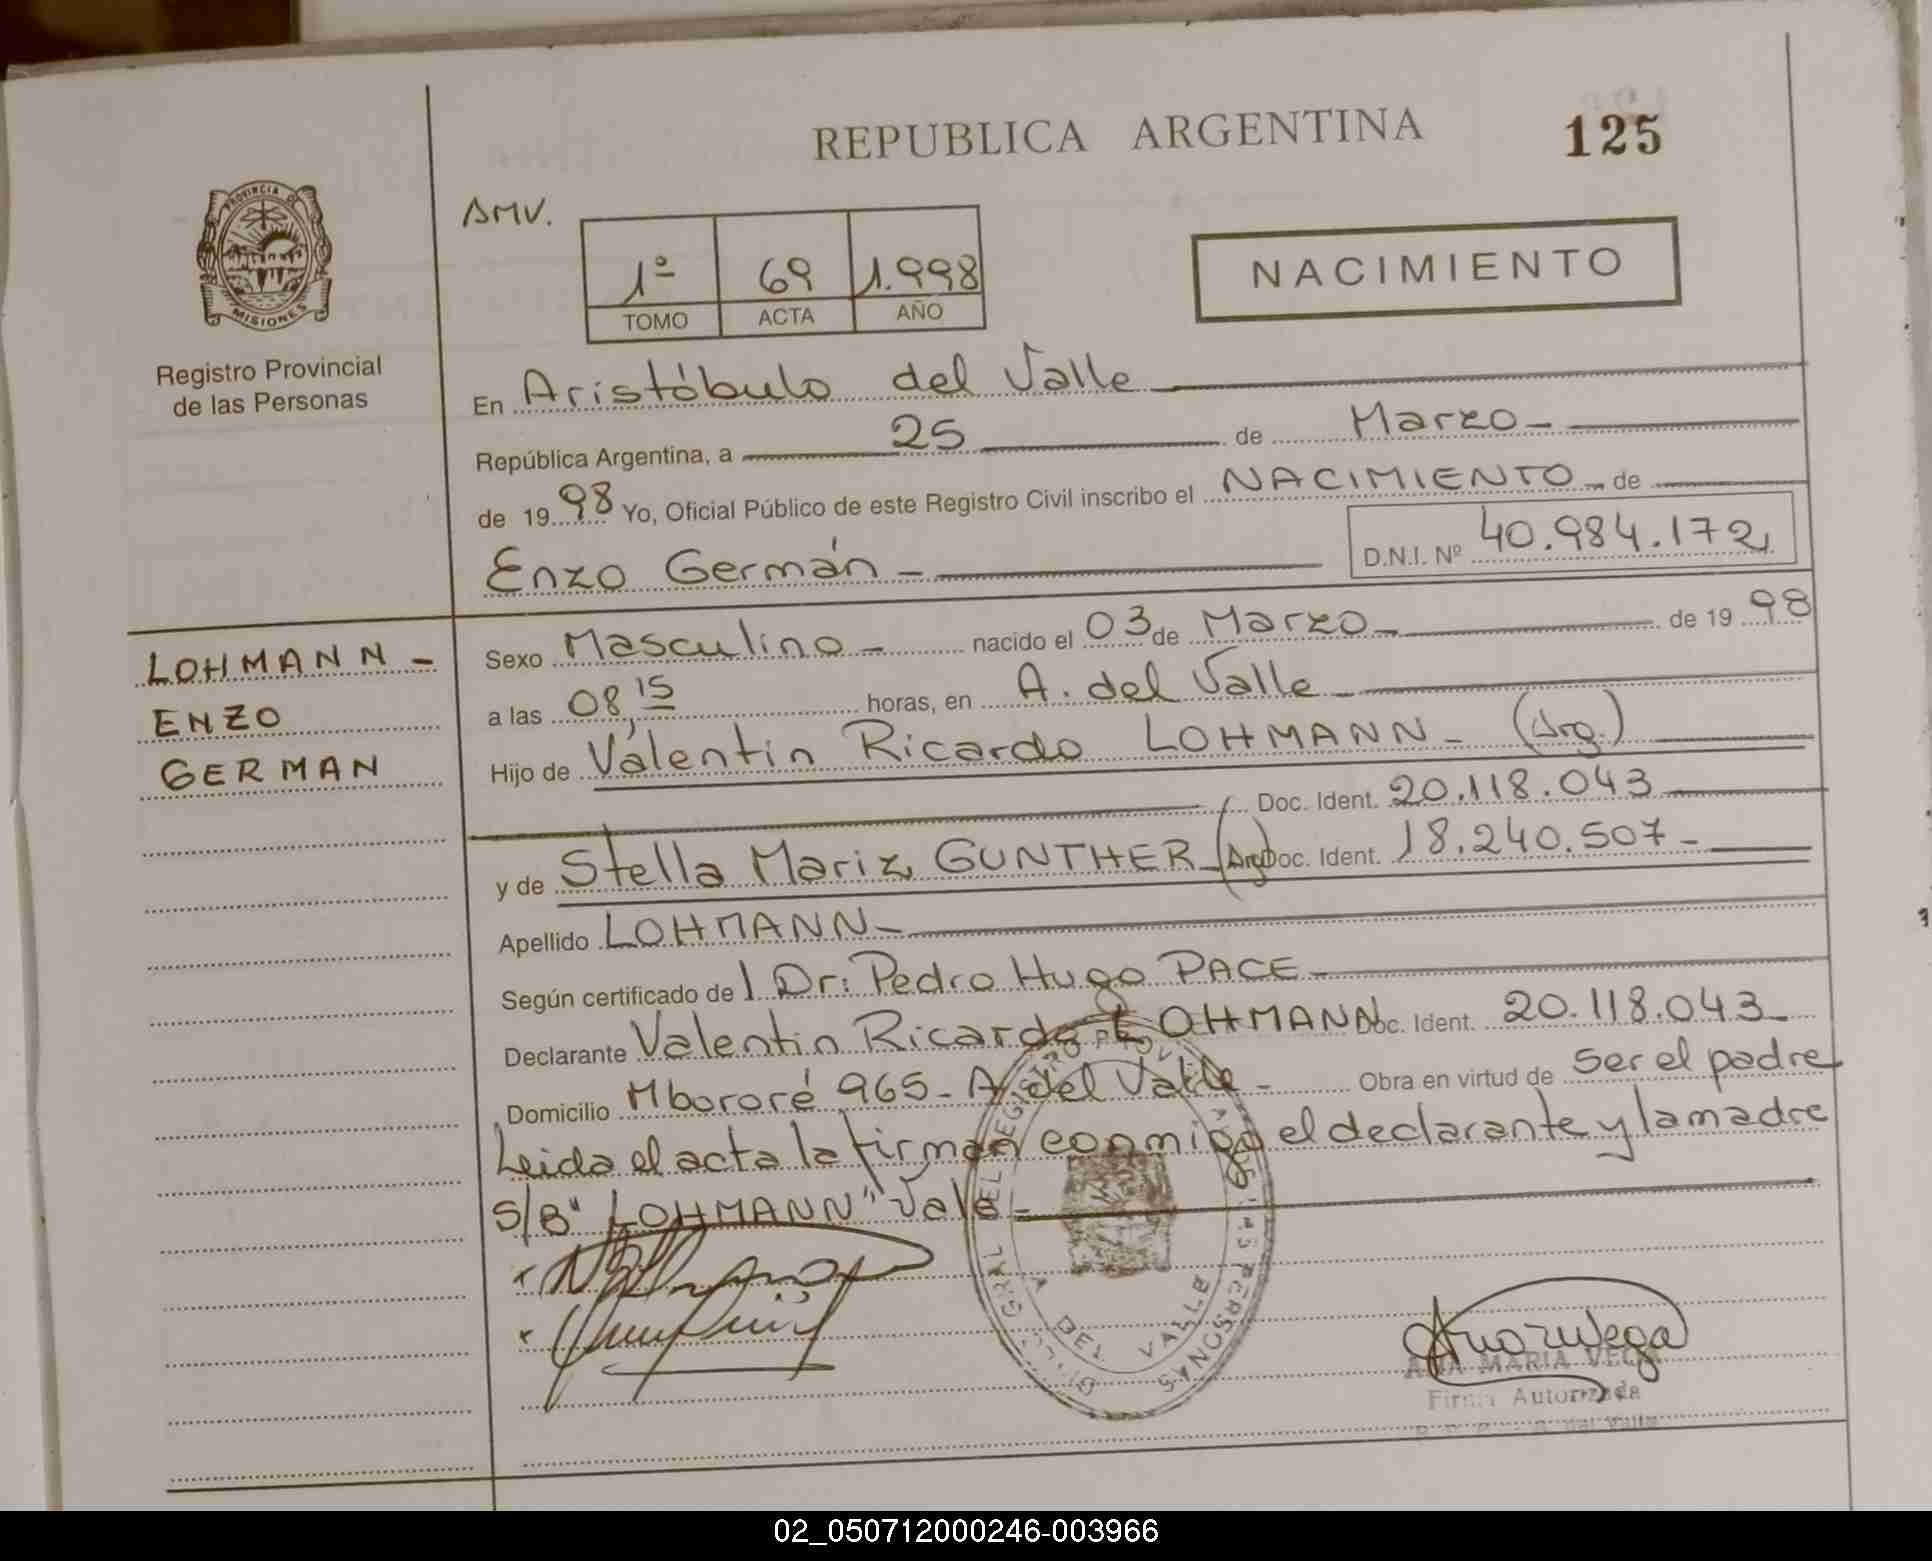 REPUBLICA ARGENTINA
125
PROVINCIA DE
MISIONES
Registro Provincial
de las Personas
AMV.
1º 69 1.998
TOMO ACTA AÑO
NACIMIENTO
En Aristóbulo del Valle
República Argentina, a 25 de Marzo
de 1998 Yo, Oficial Público de este Registro Civil inscribo el NACIMIENTO de
Enzo Germán D.N.I. Nº 40.984.172
LOHMANN
ENZO
GERMAN
Sexo Masculino nacido el 03 de Marzo de 1998
a las 08,15 horas, en A. del Valle
Hijo de Valentin Ricardo LOHMANN (Arg.)
Doc. Ident. 20.118.043
y de Stella Mariz GUNTHER (Arg) Doc. Ident. 18.240.507
Apellido LOHMANN
Según certificado del Dr: Pedro Hugo PACE
Declarante Valentin Ricardo LOHMANN Doc. Ident. 20.118.043
Domicilio Mbororé 965 - A. del Valle Obra en virtud de ser el padre
Leida el acta la firman conmigo el declarante y la madre
S/B "LOHMANN" Vale
A DEL VALLE
PERSONAS
ANA MARIA VEGA
Firma Autorizada
A. del Valle
02_050712000246-003966